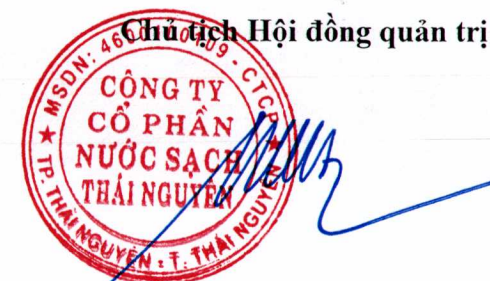 Chủ tịch Hội đồng quản trị
CÔNG TY
CỔ PHẦN
NƯỚC SẠCH
THÁI NGUYÊN
- CTCP
★ TP. THÁI NGUYÊN - T. THÁI NGUYÊN ★